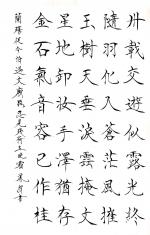 卅載交遊似露光終
隨羽化入蒼茫風摧
玉樹天垂淚雲掩文
星地卸妝手澤猶存
金石氣音容已作桂